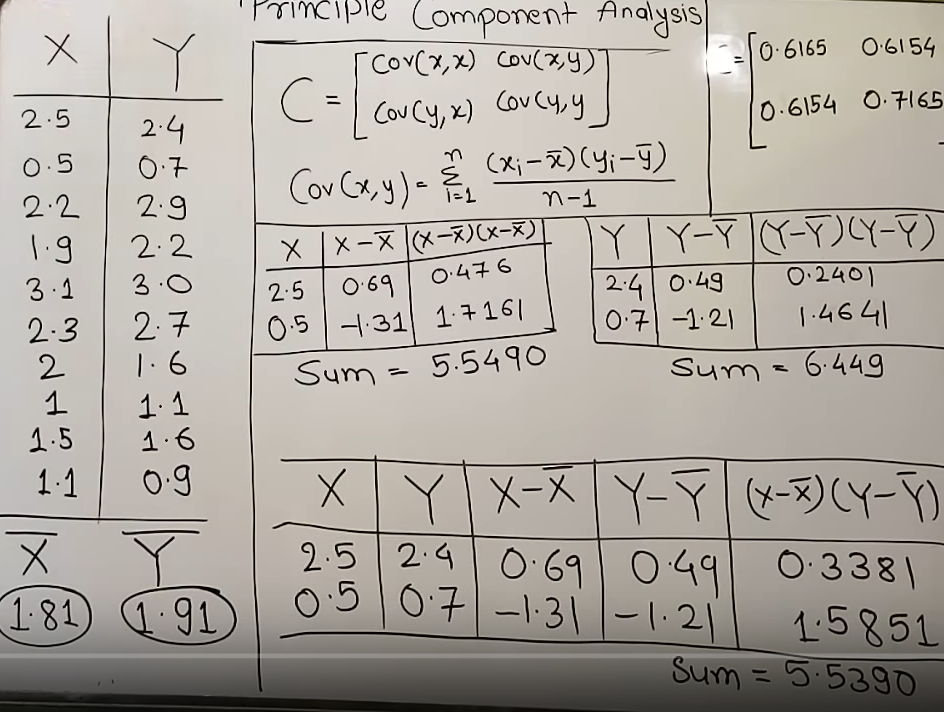 Principle Component Analysis
X Y
2.5 2.4
0.5 0.7
2.2 2.9
1.9 2.2
3.1 3.0
2.3 2.7
2 1.6
1 1.1
1.5 1.6
1.1 0.9
X̅ Y̅
1.81 1.91
C = [Cov(x,x) Cov(x,y)
Cov(y,x) Cov(y,y]
Cov(x,y) = n Σ i=1 (xᵢ-x̅)(yᵢ-y̅) / n-1
= [0.6165 0.6154
0.6154 0.7165
X X-X̅ (X-X̅)(X-X̅)
2.5 0.69 0.476
0.5 -1.31 1.7161
Sum = 5.5490
Y Y-Y̅ (Y-Y̅)(Y-Y̅)
2.4 0.49 0.2401
0.7 -1.21 1.4641
Sum = 6.449
X Y X-X̅ Y-Y̅ (x-x̅)(Y-Y̅)
2.5 2.4 0.69 0.49 0.3381
0.5 0.7 -1.31 -1.21 1.5851
Sum = 5.5390